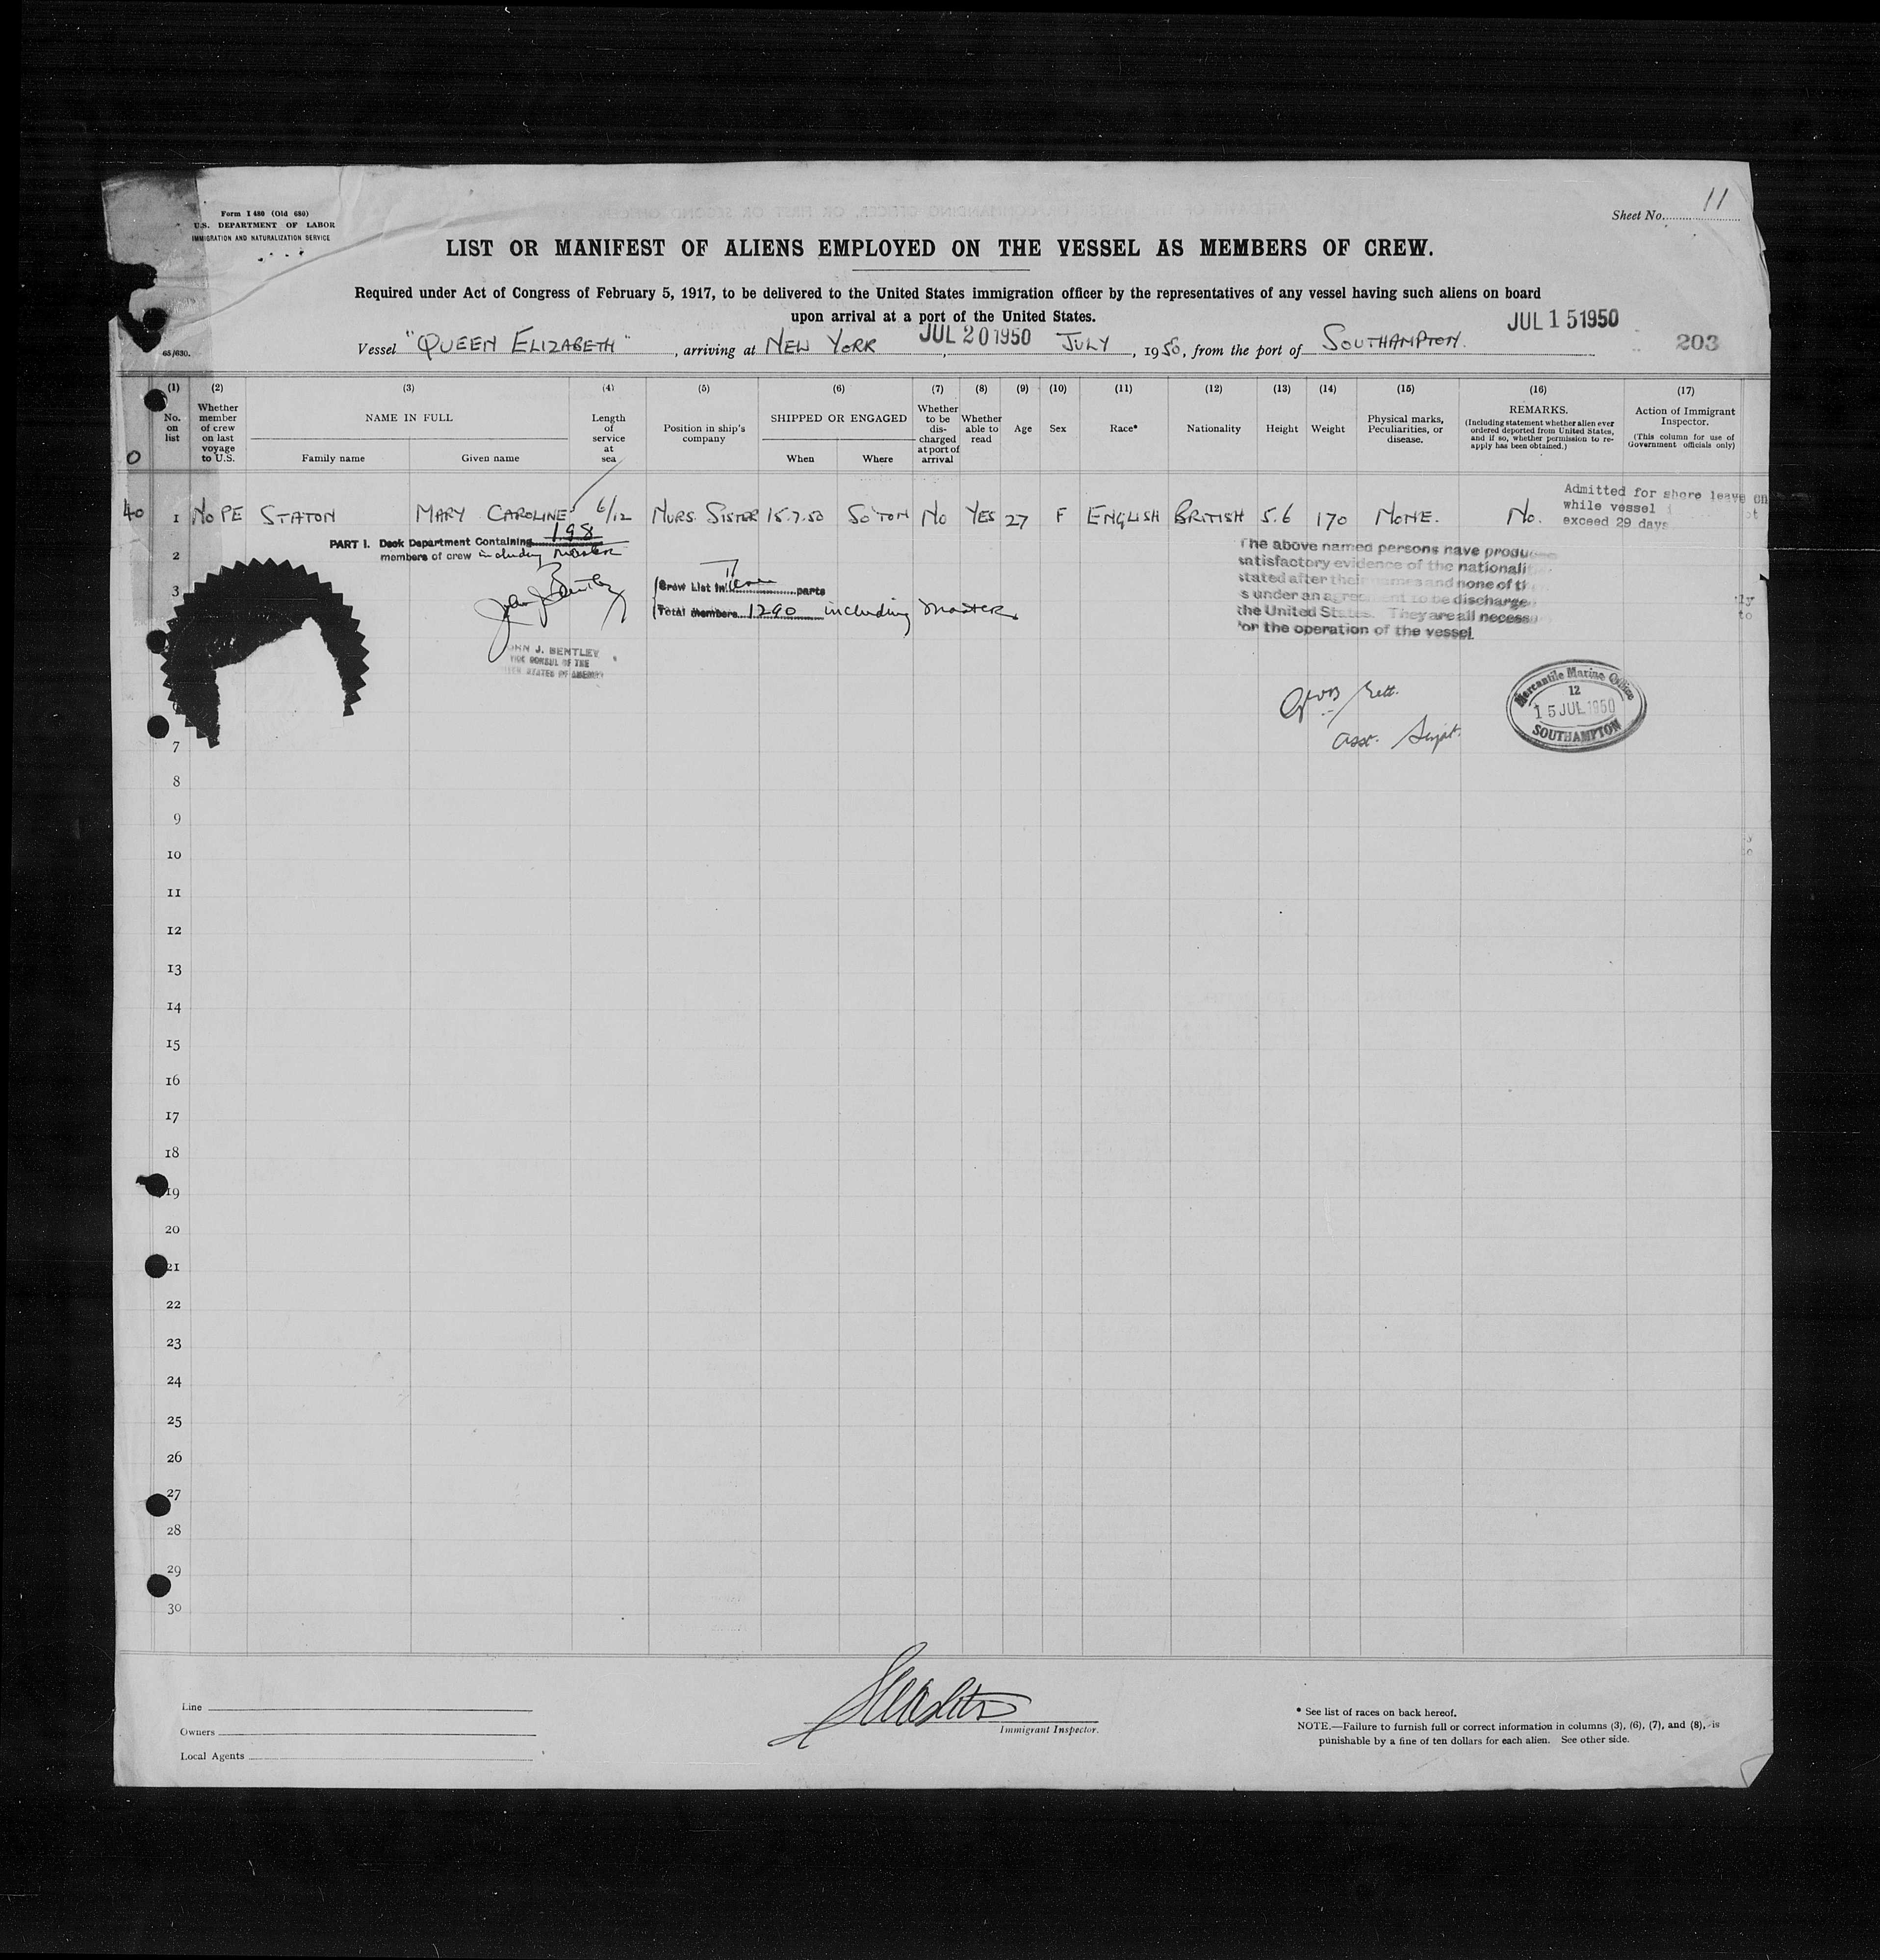 Form I 480 (Old 680)
U.S. DEPARTMENT OF LABOR
IMMIGRATION AND NATURALIZATION SERVICE
Sheet No. 11
LIST OR MANIFEST OF ALIENS EMPLOYED ON THE VESSEL AS MEMBERS OF CREW.
Required under Act of Congress of February 5, 1917, to be delivered to the United States immigration officer by the representatives of any vessel having such aliens on board
upon arrival at a port of the United States.
JUL 15 1950
65/630.
Vessel "QUEEN ELIZABETH", arriving at NEW YORK JUL 20 1950, JULY, 1950, from the port of SOUTHAMPTON.
203
(1) (2) (3) (4) (5) (6) (7) (8) (9) (10) (11) (12) (13) (14) (15) (16) (17)
No. on list
Whether member of crew on last voyage to U.S.
NAME IN FULL
Family name
Given name
Length of service at sea
Position in ship's company
SHIPPED OR ENGAGED
When
Where
Whether to be discharged at port of arrival
Whether able to read
Age
Sex
Race*
Nationality
Height
Weight
Physical marks, Peculiarities, or disease.
REMARKS.
(Including statement whether alien ever ordered deported from United States, and if so, whether permission to re-apply has been obtained.)
Action of Immigrant Inspector.
(This column for use of Government officials only)
0
40 1 NO PE STATON MARY CAROLINE 6/12 NURS. SISTER 15.7.50 SO'TON NO YES 27 F ENGLISH BRITISH 5.6 170 NONE. NO.
Admitted for shore leave on
while vessel
exceed 29 days
PART I. Deck Department Containing 198
members of crew including master
Crew List in parts
Total members 1290 including master
The above named persons have produ
satisfactory evidence of the nationali
stated after their names and none of th
s under an agreement to be discharge
the United States. They are all necess
for the operation of the vessel.
John J. Bentley
JOHN J. BENTLEY
VICE CONSUL OF THE
UNITED STATES OF AMERICA
Asst. Supt.
Mercantile Marine Office
12
15 JUL 1950
SOUTHAMPTON
2
3
7
8
9
10
11
12
13
14
15
16
17
18
19
20
21
22
23
24
25
26
27
28
29
30
Line
Owners
Local Agents
Immigrant Inspector.
* See list of races on back hereof.
NOTE.—Failure to furnish full or correct information in columns (3), (6), (7), and (8), is
punishable by a fine of ten dollars for each alien. See other side.